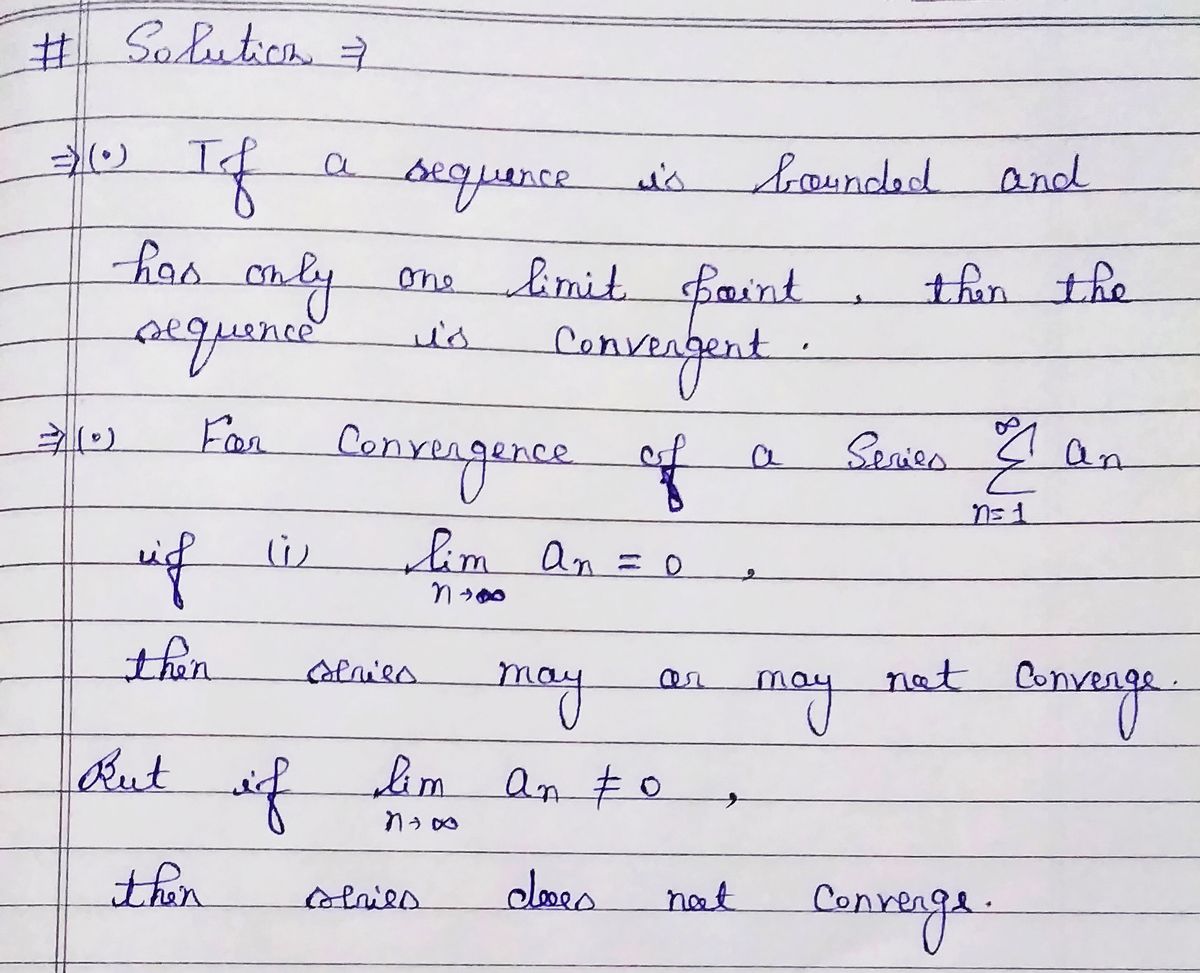 # Solution ⇒
⇒ (•) If a sequence is bounded and
has only one limit point, then the
sequence is Convergent.
⇒ (•) For Convergence of a Series ∞ Σ n=1 an
if (i) lim n→∞ an = 0,
then series may or may not Converge.
But if lim n→∞ an ≠ 0,
then series does not Converge.